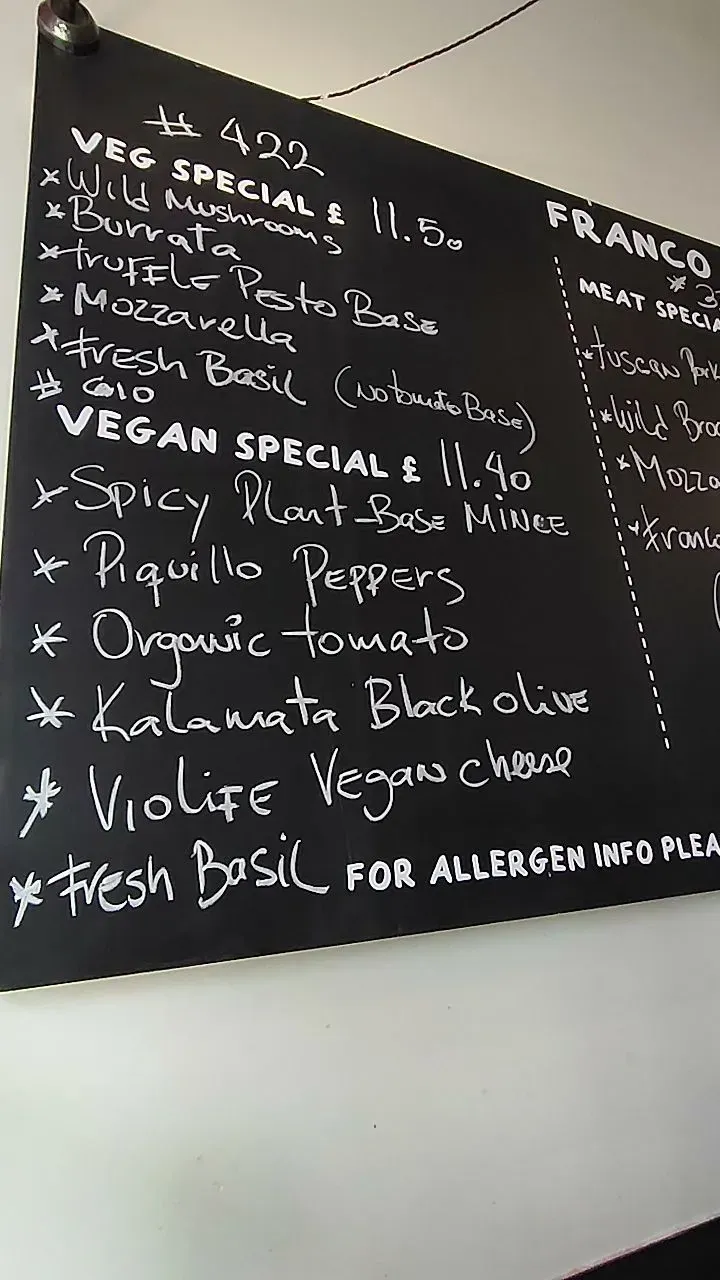 # 422
VEG SPECIAL £ 11.50
* Wild Mushrooms
* Burrata
* truffle Pesto Base
* Mozzarella
* Fresh Basil (No tomato Base)
# 610
VEGAN SPECIAL £ 11.40
* Spicy Plant-Base MINCE
* Piquillo PEPPERS
* Organic tomato
* Kalamata Black olive
* Violife Vegan cheese
* Fresh Basil
FOR ALLERGEN INFO PLEA
FRANCO
* 3
MEAT SPECIA
* Tuscan Pork
* Wild Broc
* Mozza
* Franc